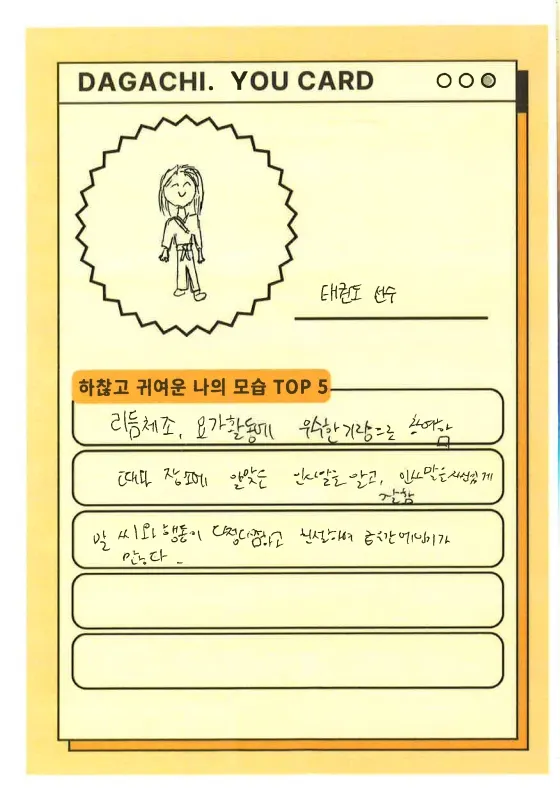 DAGACHI. YOU CARD
태권도 선수
하찮고 귀여운 나의 모습 TOP 5
리듬체조, 요가활동에 우수한 기량으로 참여함
때와 장소에 알맞은 인사말을 알고, 인사말을 시선에 맞게
잘함
말씨와 행동이 다정다감하고 친절하여
많다.